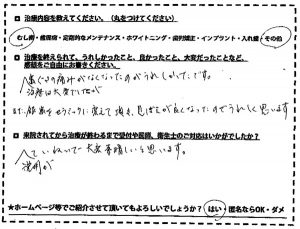 □ 治療内容を教えてください。（丸をつけてください）
むし歯・歯周病・定期的なメンテナンス・ホワイトニング・歯列矯正・インプラント・入れ歯・その他
□ 治療を終えられて、うれしかったこと、良かったこと、大変だったことなど、
感想をご自由にお書きください。
歯ぐきの痛みがなくなったのがうれしかったです。
治療は大変でしたが
また、銀歯をセラミックに変えて頂き、見ばえが良くなったのでうれしく思います
□ 来院されてから治療が終わるまで受付や医師、衛生士のご対応はいかがでしたか？
ていねいで大変素晴しいと思います。
説明が
★ホームページ等でご紹介させて頂いてもよろしいでしょうか？ はい・匿名ならOK・ダメ